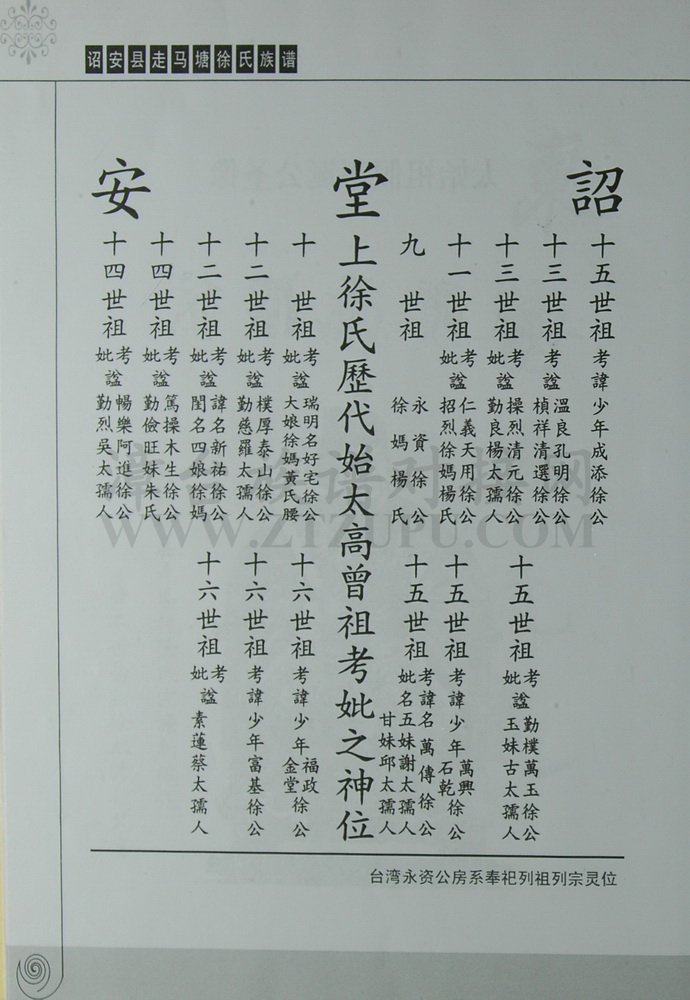 诏安县走马塘徐氏族谱
詔 堂 安
十五世祖考諱少年成添徐公
十三世祖考諡溫良孔明徐公
楨祥清選徐公
十三世祖考妣諡操烈清元徐公
勤良楊太孺人
十一世祖考妣諡仁義天用徐公
招烈徐媽楊氏
九世祖永資徐公
徐媽楊氏
上徐氏歷代始太高曾祖考妣之神位
十世祖考妣諡瑞明名好宅徐公
大娘徐媽黃氏腰
十二世祖考妣諡樸厚泰山徐公
勤慈羅太孺人
十二世祖考妣諡諱名新祐徐公
閨名四娘徐媽
十四世祖考妣諡篤操木生徐公
勤儉旺妹朱氏
十四世祖考妣諡暢樂阿進徐公
勤烈吳太孺人
十五世祖考妣諡勤樸萬玉徐公
玉妹古太孺人
十五世祖考諱少年萬興石乾徐公
十五世祖考諱名萬傳徐公
妣名五妹謝太孺人
甘妹邱太孺人
十六世祖考諱少年福政金堂徐公
十六世祖考諱少年富基徐公
十六世祖考妣諡素蓮蔡太孺人
台湾永资公房系奉祀列祖列宗灵位
WWW.ZTZUPU.COM